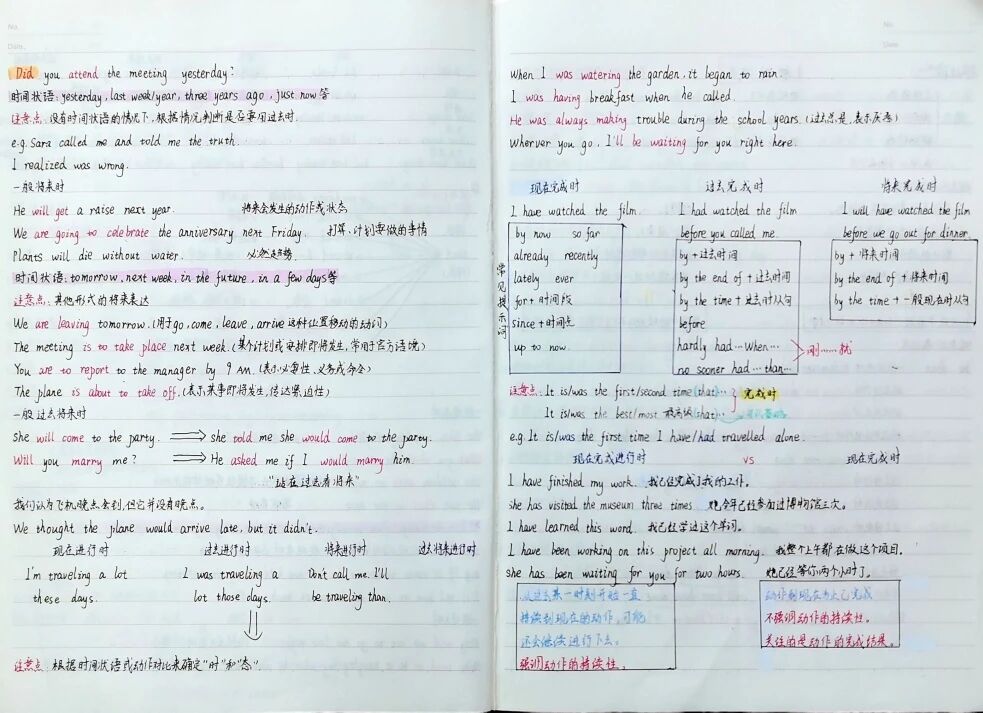 No.
Date.
Did you attend the meeting yesterday?
时间状语: yesterday, last week/year, three years ago, just now等
注意点: 没有时间状语的情况下, 根据情况判断是否要用过去时.
e.g. Sara called me and told me the truth.
I realized was wrong.
一般将来时
He will get a raise next year. 将来会发生的动作或状态
We are going to celebrate the anniversary next Friday. 打算.计划要做的事情
Plants will die without water. 必然趋势
时间状语: tomorrow, next week, in the future, in a few days等
注意点: 其他形式的将来表达
We are leaving tomorrow. (用于go, come, leave, arrive这种位置移动的动词)
The meeting is to take place next week. (某个计划或安排即将发生, 常用于官方语境)
You are to report to the manager by 9 AM. (表示必要性、义务或命令)
The plane is about to take off. (表示某事即将发生, 传达紧迫性)
一般过去将来时
She will come to the party. ⟹ she told me she would come to the party.
Will you marry me? ⟹ He asked me if I would marry him.
"站在过去看将来"
我们认为飞机晚点会到, 但它并没有晚点。
We thought the plane would arrive late, but it didn't.
现在进行时 过去进行时 将来进行时 过去将来进行时
I'm traveling a lot I was traveling a Don't call me. I'll
these days. lot those days. be traveling than.
注意点: 根据时间状语或动作对比来确定"时"和"态".
No.
Date
When I was watering the garden, it began to rain.
I was having breakfast when he called.
He was always making trouble during the school years. (过去总是, 表示厌恶)
Wherver you go, I'll be waiting for you right here.
现在完成时 过去完成时 将来完成时
I have watched the film. I had watched the film I will have watched the film
before you called me. before we go out for dinner.
常见提示词
by now so far
already recently
lately ever
for + 时间段
since + 时间点
up to now
by + 过去时间
by the end of + 过去时间
by the time + 过去时从句
before
hardly had…when…
no sooner had…than…
刚……就
by + 将来时间
by the end of + 将来时间
by the time + 一般现在时从句
注意点: It is/was the first/second time (that)… 完成时
It is/was the best/most 最高级 (that)…
e.g. It is/was the first time I have/had travelled alone.
现在完成进行时 VS 现在完成时
I have finished my work. 我已经完成了我的工作。
she has visited the museum three times. 她今年已经参加过博物馆三次。
I have learned this word. 我已经学过这个单词。
I have been working on this project all morning. 我整个上午都在做这个项目。
she has been waiting for you for two hours. 她已经等你两个小时了。
从过去某一时刻开始一直
持续到现在的动作, 可能
还会继续进行下去。
强调动作的持续性。
动作到现在为止已完成
不强调动作的持续性。
关注的是动作的完成结果。